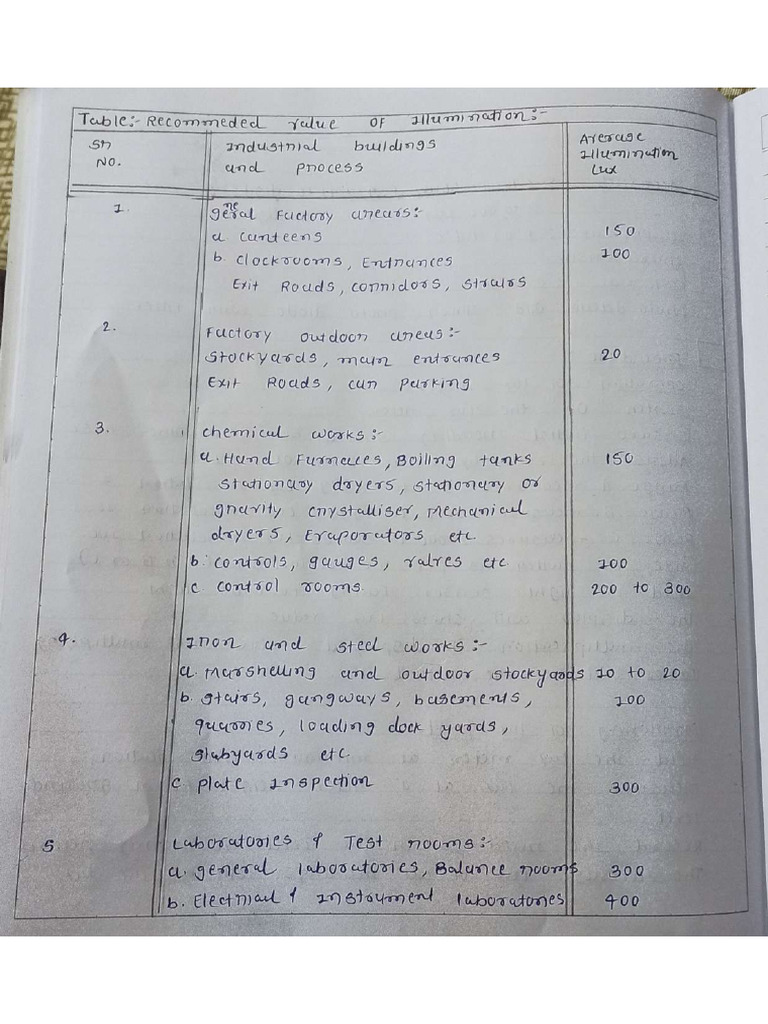 Table:- Recommeded value OF Illumination:-
Sn No.
Industrial buildings and process
Average Illumination Lux
1. general Factory arears:-
a canteens 150
b. Clockrooms, Entrances 100
Exit Roads, corridors, strairs
2. Factory outdoor areas:-
Stockyards, main entrances 20
Exit Roads, car Parking
3. Chemical works:-
a. Hand Furnaces, Boiling tanks 150
Stationary dryers, Stationary or
gravity crystalliser, Mechanical
dryers, Evaporators etc
b. controls, gauges, valves etc 100
c control rooms 200 to 300
4. Iron and steel works:-
a. Marshelling and outdoor stockyards 10 to 20
b. Stairs, gangways, basements, 100
quarries, loading dock yards,
slabyards etc.
c Plate Inspection 300
5 Laboratories & Test rooms:-
a. general laboratories, Balance rooms 300
b. Electrical & Instrument laboratories 400